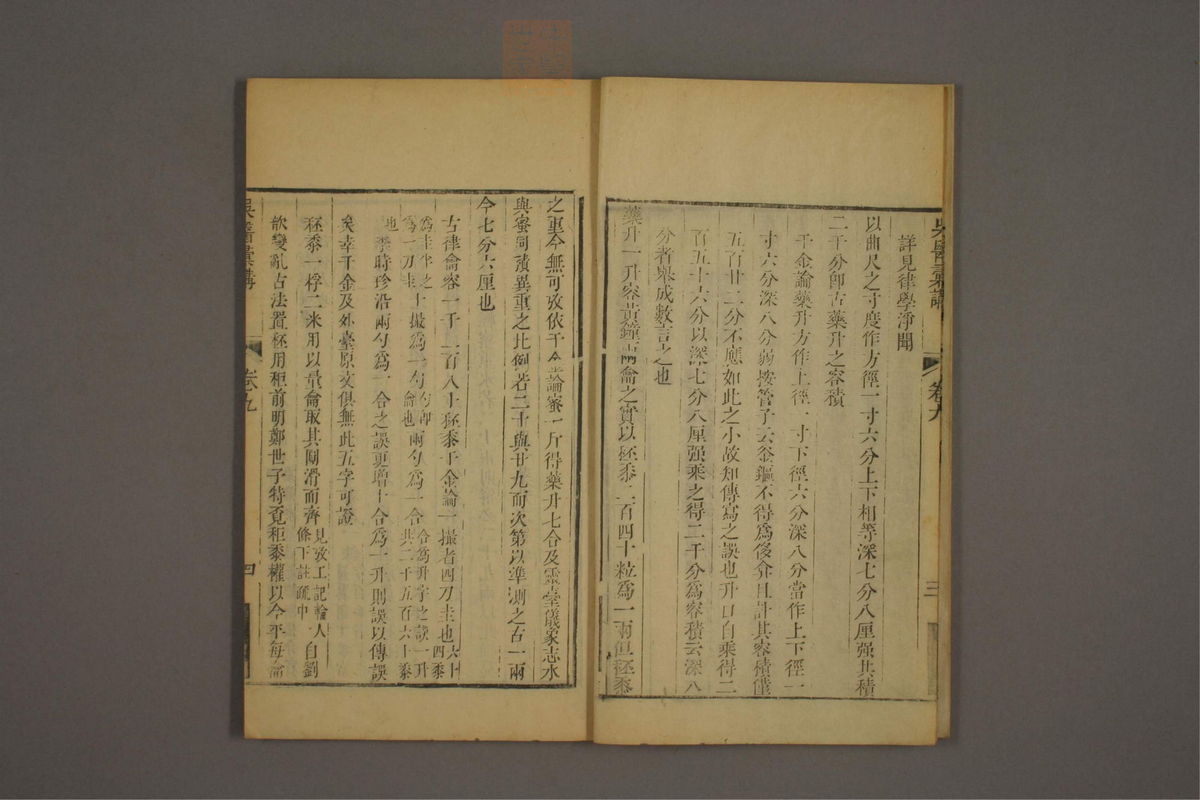 吳醫彙講
卷九
三
詳見律學淨聞
以曲尺之寸度作方徑一寸六分上下相等深七分八厘强共積
二千分卽古藥升之容積
千金論藥升方作上徑一寸下徑六分深八分當作上下徑一
寸六分深八分弱按管子云釜鏂不得爲侈弇且計其容積僅
五百廿二分不應如此之小故知傳寫之誤也升口自乘得二
百五十六分以深七分八厘强乘之得二千分爲容積云深八
分者舉成數言之也
藥升一升容黃鐘兩龠之實以秬黍二百四十粒爲一兩但秬黍
之重今無可攷依千金論蜜一斤得藥升七合及靈臺儀象志水
與蜜同積異重之比例若二十與廿九而次第以準測之古一兩
今七分六厘也
古律龠容一千二百八十秬黍千金論一撮者四刀圭也六十四黍
爲圭作之爲一刀圭十撮爲一勺勺卽龠也兩勺爲一合合爲升字之誤一升共二千五百六十黍
也李時珍沿兩勺爲一合之誤更增十合爲一升則誤以傳誤
矣幸千金及外臺原文俱無此五字可證
秬黍一稃二米用以量龠取其圓滑而齊見攷工記輪人條下註疏中自劉
歆變亂古法置秬用秠前明鄭世子特覓秠黍權以今平每龠
吳醫彙講
卷九
四